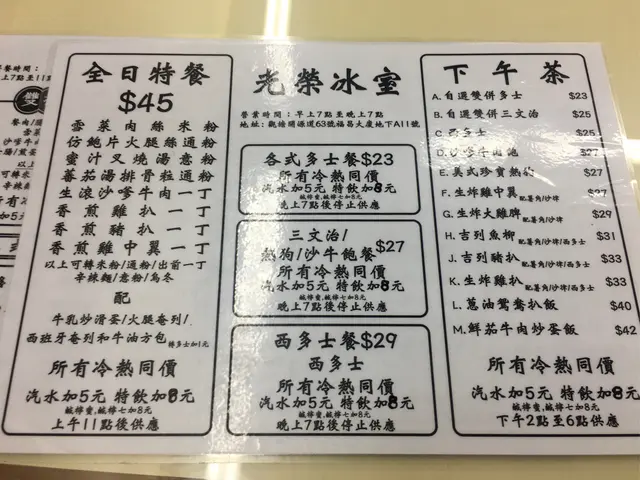 全日特餐
$45
雪菜肉絲米粉
仿鮑片火腿絲通粉
蜜汁叉燒湯意粉
蕃茄湯排骨粒通粉
生滾沙嗲牛肉一丁
香煎雞扒一丁
香煎豬扒一丁
香煎雞中翼一丁
以上可轉米粉/通粉/出前一丁
辛辣麵/意粉/烏冬
配
牛乳炒滑蛋/火腿奄列/
西班牙奄列和牛油方包 轉多士加1元
所有冷熱同價
汽水加5元 特飲加8元
鹹檸蜜,鹹檸七加8元
上午11點後供應
光榮冰室
營業時間：早上7點至晚上7點
地址：觀塘開源道63號福昌大廈地下A11號
各式多士餐$23
所有冷熱同價
汽水加5元 特飲加8元
鹹檸蜜,鹹檸七加8元
晚上7點後停止供應
三文治/
熱狗/沙牛飽餐 $27
所有冷熱同價
汽水加5元 特飲加8元
鹹檸蜜,鹹檸七加8元
晚上7點後停止供應
西多士餐$29
西多士
所有冷熱同價
汽水加5元 特飲加8元
鹹檸蜜,鹹檸七加8元
晚上7點後停止供應
下午茶
A. 自選雙併多士 $23
B. 自選雙併三文治 $25
C. 西多士 $25
D. 沙嗲牛肉飽 $27
E. 美式珍寶熱狗 $27
F. 生炸雞中翼 配薯角/沙律 $27
G. 生炸大雞脾 配薯角/沙律 $29
H. 吉列魚柳 配薯角/沙律/西多士 $31
J. 吉列豬扒 配薯角/沙律/西多士 $33
K. 生炸雞扒 配薯角/沙律/西多士 $33
L. 蔥油鴛鴦扒飯 $40
M. 鮮茄牛肉炒蛋飯 $42
所有冷熱同價
汽水加5元 特飲加8元
鹹檸蜜,鹹檸七加8元
下午2點至6點供應